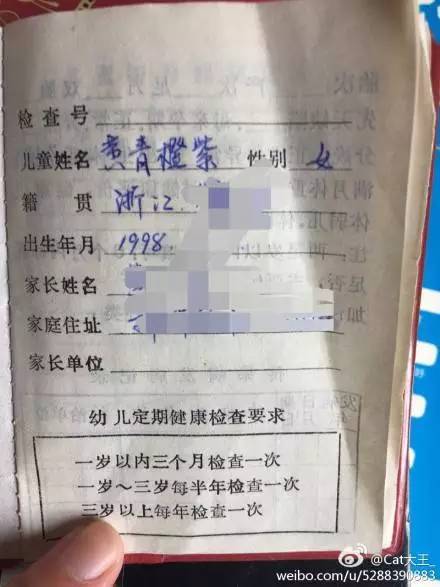 检查号
儿童姓名 黄青橙紫 性别 女
籍贯 浙江
出生年月 1998.
家长姓名
家庭住址
家长单位
幼儿定期健康检查要求
一岁以内三个月检查一次
一岁～三岁每半年检查一次
三岁以上每年检查一次
@Cat大王_
weibo.com/u/5288390883